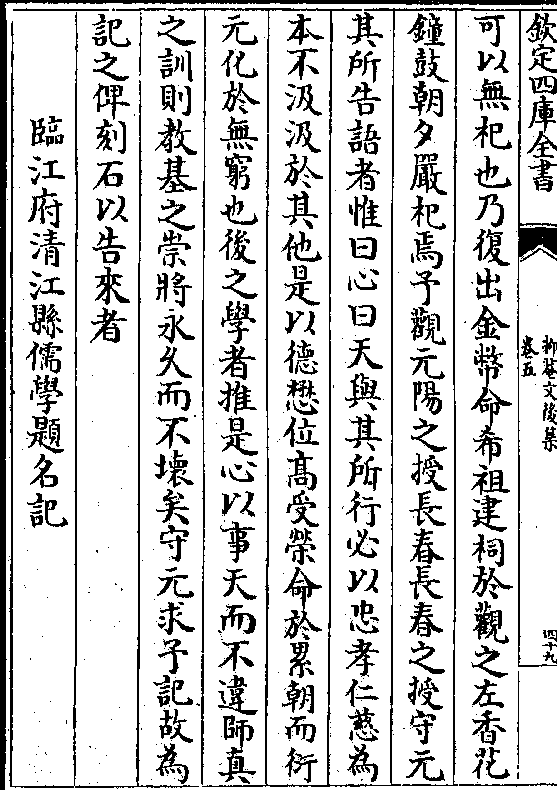 欽定四庫全書
抑菴文後集
卷五
四十九
可以無祀也乃復出金幣命希祖建祠於觀之左香花
鐘鼓朝夕嚴祀焉予觀元陽之授長春長春之授守元
其所告語者惟曰心曰天與其所行必以忠孝仁慈為
本不汲汲於其他是以德懋位高受榮命於累朝而衍
元化於無窮也後之學者推是心以事天而不違師真
之訓則教基之崇將永久而不壞矣守元求予記故為
記之俾刻石以告來者
臨江府清江縣儒學題名記